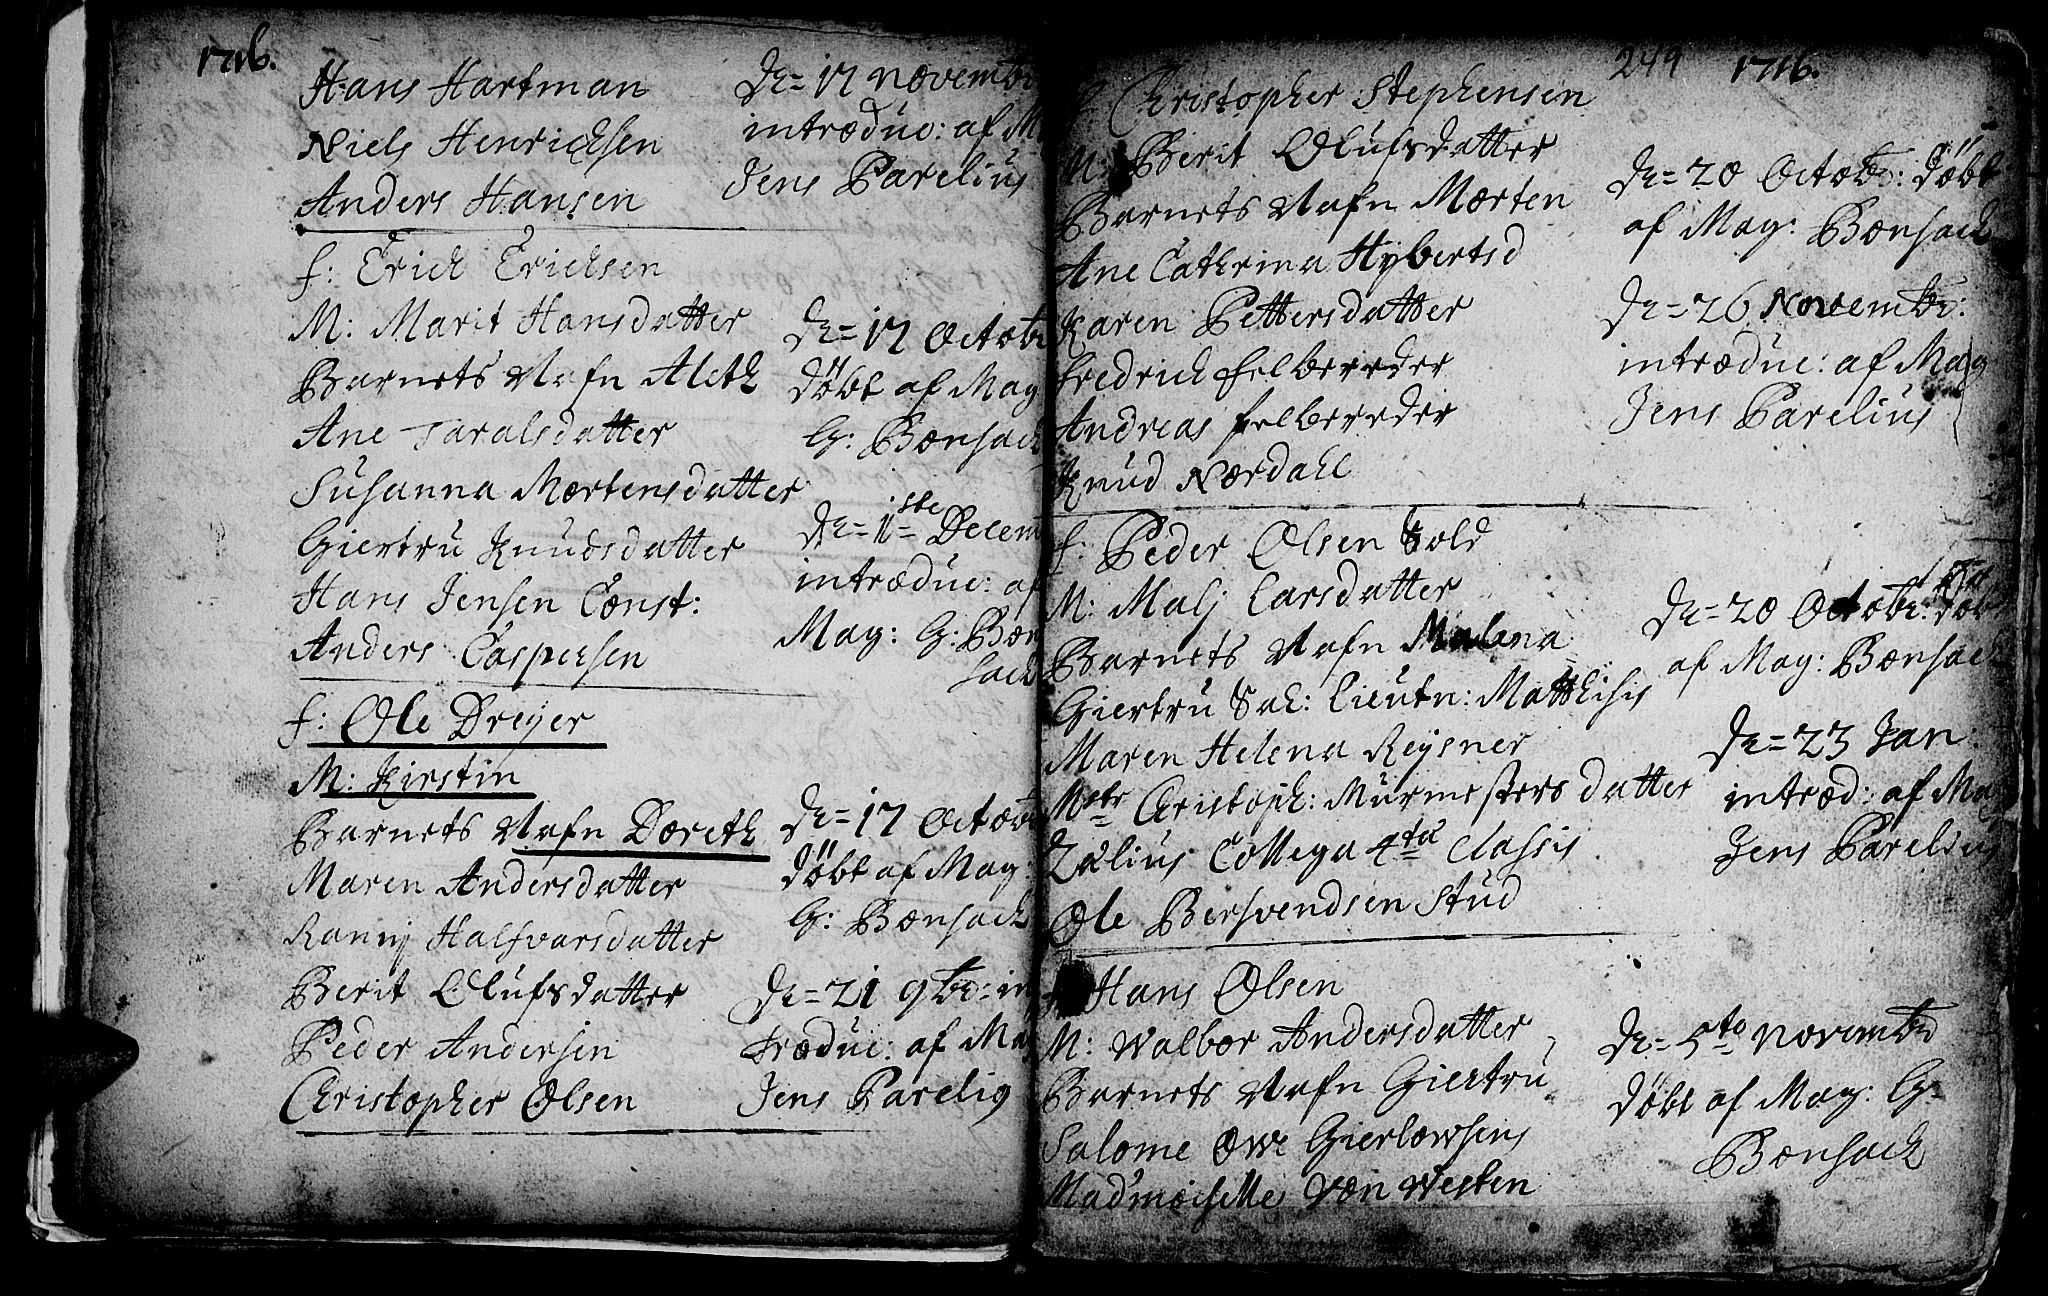 1716.
Hans Hartman
Niels Henrichsen
Anders Hansen
d= 17 novembr
introduc: af M
Jens Parelius
f: Erich Erichsen
M: Marit Hansdatter
Barnets Nafn Aleth
Ane Taralsdatter
Susanna Mortensdatter
Giertru Knudsdatter
Hans Jensen Const:
Anders Caspersen
d= 17 Octobr
döbt af Mag
G: Bonsach
d= 1ste Decem
introduc: af
Mag: G: Bon
sach
f: Ole Dreyer
M: Kirstin
Barnets Nafn Doreth
Maren Andersdatter
Ranij Halfvarsdatter
Berit Olufsdatter
Peder Andersen
Christopher Olsen
d= 17 Octobr
döbt af Mag:
G: Bonsach
d= 21 9br: in
troduc: af Mag
Jens Parelig
249 1716.
f: Christopher Stephensen
M: Berit Olufsdatter
Barnets Nafn Morten
Ane Cathrina Hybertsd
Karen Pettersdatter
fredrich felbereder
Andreas felbereder
Knud Nordahl
d= 20 Octobr: döbt
af Mag: Bonsach
d= 26 Novembr:
introduc: af Mag
Jens Parelius
f: Peder Olsen Sold
M: Malj Larsdatter
Barnets Nafn Malena
Giertru Sal: Lieutn: Matthisis
Maren Helena Reysner
Mstr Christoph: Murmesters datter
Zælius Collega 4ta Classis
Ole Bersvendsen Stud
d= 20 Octobr: döbt
af Mag: Bonsach
d= 23 Jan:
introd: af Mag
Jens Parelius
f: Hans Olsen
M: Walbor Andersdatter
Barnets Nafn Giertru
Salome Owe Gierlowsens
Madmoiselle von Westen
d= 5to Novembr
döbt af Mag: G:
Bonsach